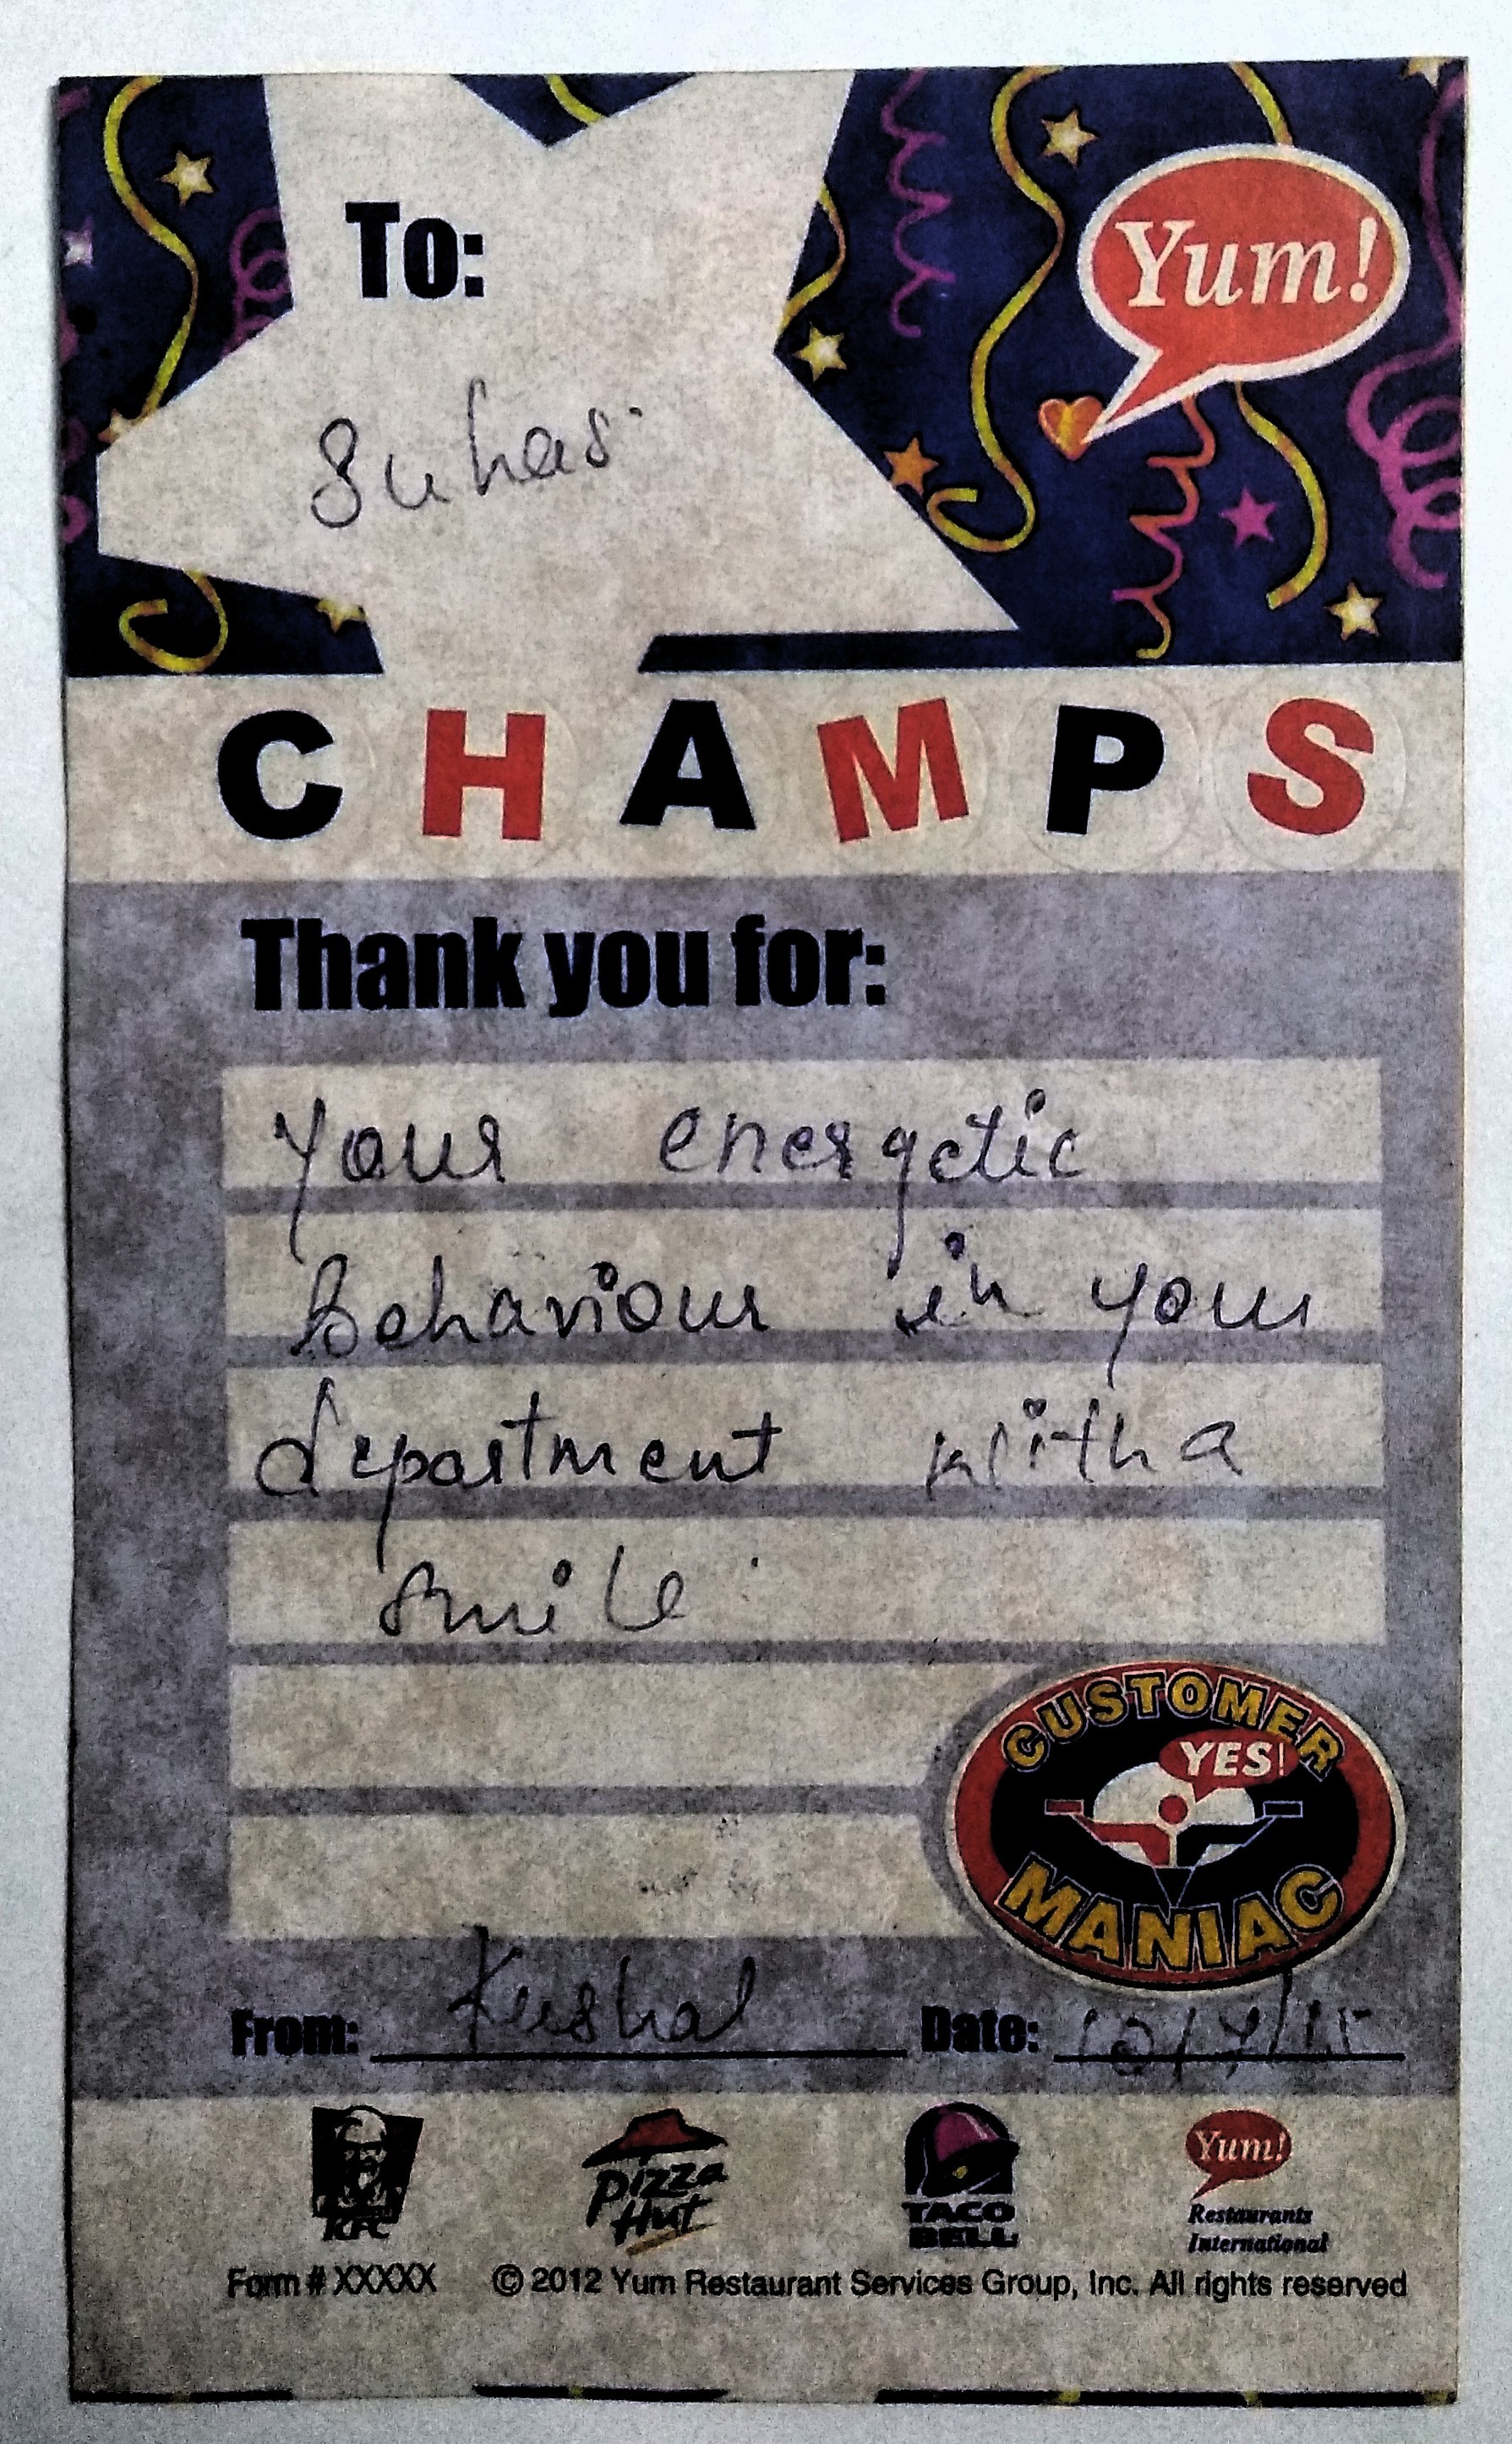 To:
Yum!
Suhas
CHAMPS
Thank you for:
Your energetic
Behaviour in your
department with a
Smile
CUSTOMER
YES!
MANIAC
From: Kushal Date: 10/7/15
KFC
Pizza
Hut
TACO
BELL
Yum!
Restaurants
International
Form # XXXXX © 2012 Yum Restaurant Services Group, Inc. All rights reserved